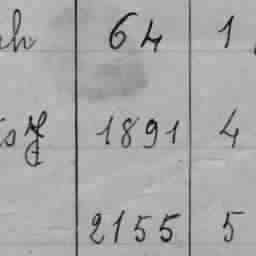 64 1
1891 4
2155 5